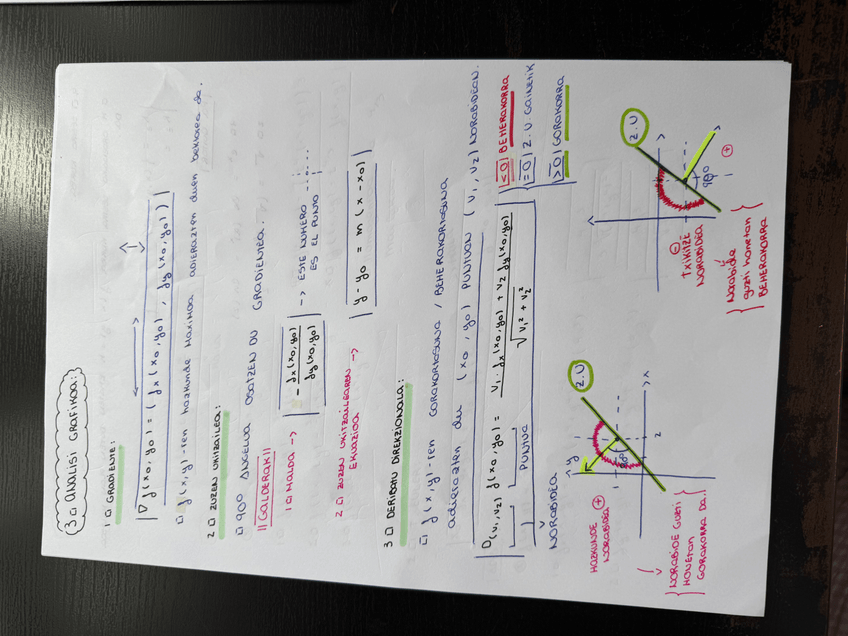 3☐ ANALISI GRAFIKOA:
1☐ GRADIENTE:
∇f(x0,y0) = (fx(x0,y0), fy(x0,y0))
☐ f(x,y)-ren hazkunde maximoa adierazten duen bektorea da.
2☐ ZUZEN UKITZAILEA:
☐ 90º ANGELUA OSATZEN DU GRADIENTEA.
!! GALDERAK!!
1☐ MALDA -> - fx(x0,y0) / fy(x0,y0) -> ESTE NUMERO ES EL PUNTO
2☐ ZUZEN UKITZAILEAREN -> EKUAZIOA
y-y0 = m(x-x0)
3☐ DERIBATU DIREKZIONALA:
☐ f(x,y)-ren GORAKORTASUNA / BEHERAKORTASUNA
adierazten du (x0,y0) PUNTUAN (v1,v2) NORABIDEAN.
D(v1,v2) f(x0,y0) = v1·fx(x0,y0) + v2 fy(x0,y0) / √v1²+v2²
<0| BEHERAKORRA
=0| Z.U. GAINETIK
>0| GORAKORRA
NORABIDEA
PUNTUA
HAZKUNDE
NORABIDEA +
y
Z.U
90º
1
2
x
NORABIDE GUZTI
HONETAN
GORAKORRA DA.
-
TXIKITZE
NORABIDEA
Z.U
90º
1
+
NORABIDE
guzti honetan
BEHERAKORRA